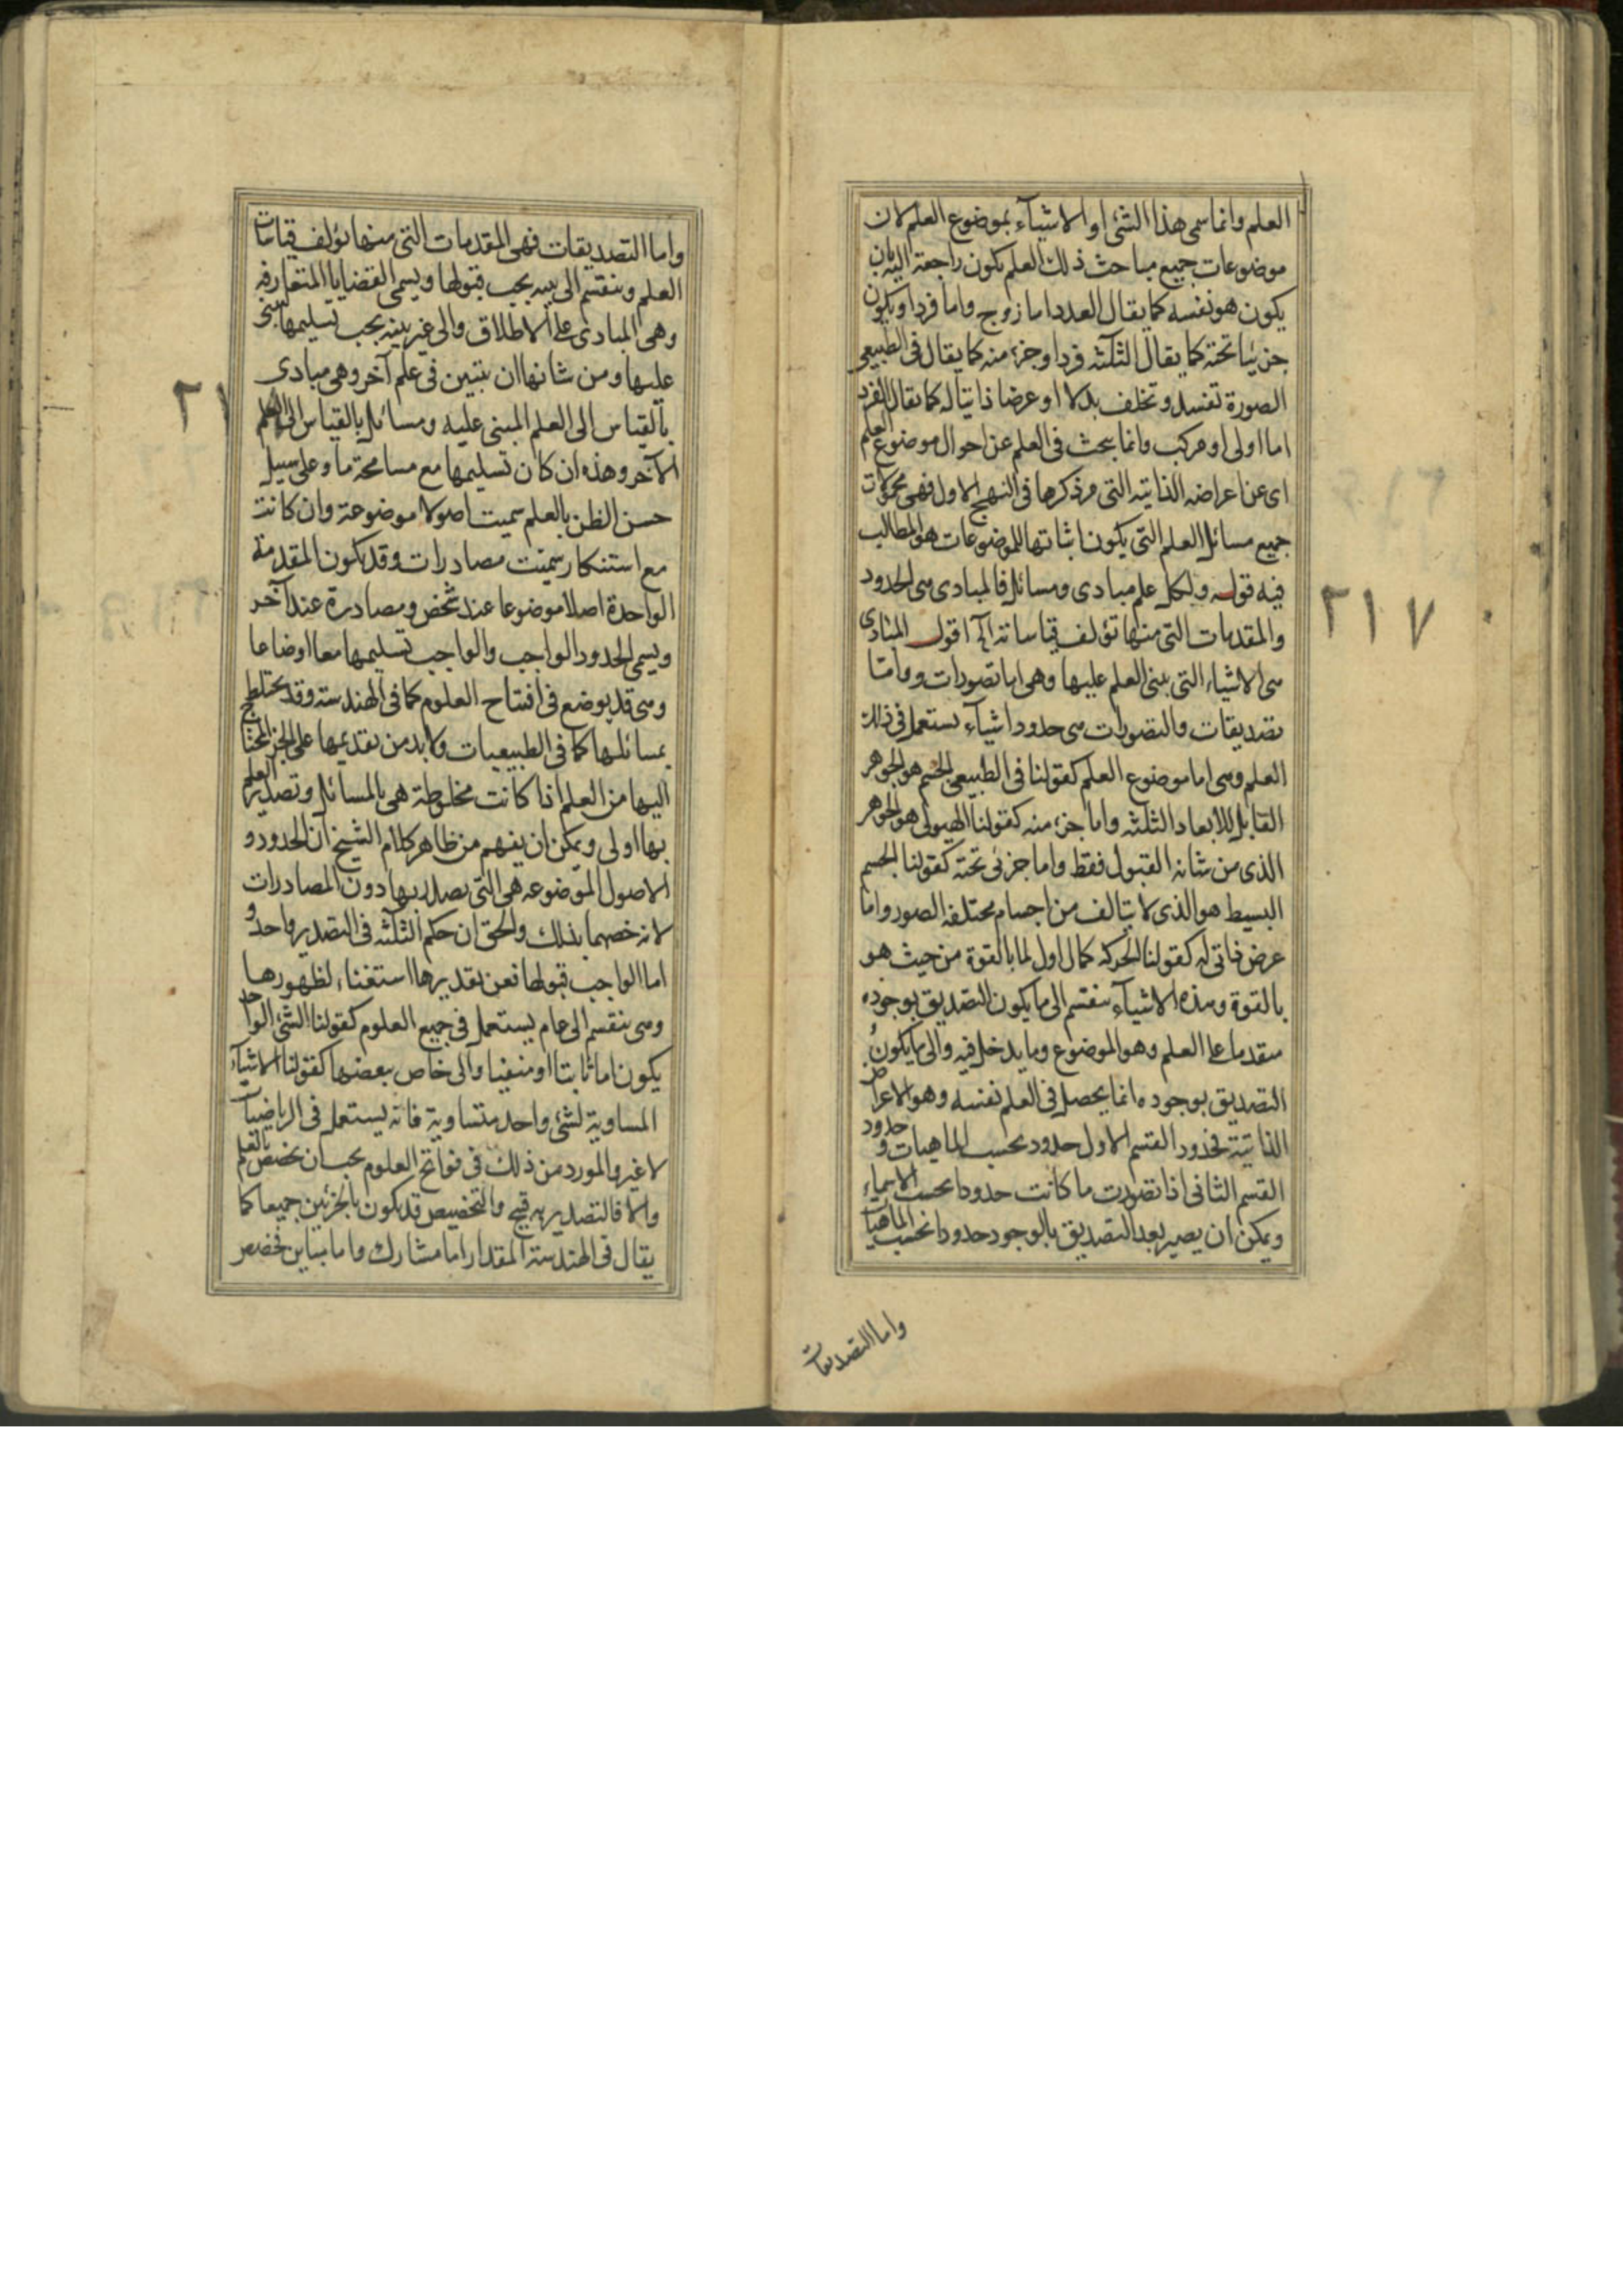 العلم وانما سمى هذا الشئ او الاشيآء بموضوع العلم لان
موضوعات جميع مباحث ذلك العلم يكون راجعة اليه بان
يكون هو نفسه كما يقال العدد اما زوج واما فرد او يكون
جزئيا تحته كما يقال الثلثه فرد او جزء منه كما يقال فى الطبيعى
الصورة تفسد وتخلف بدلا او عرضا ذاتيا له كما يقال الفرد
اما اولى او مركب وانما يبحث فى العلم عن احوال موضوع العلم
اى عن اعراضه الذاتيه التى مر ذكرها فى النهج الاول فهى محمولات
جميع مسائل العلم التى يكون اثباتها للموضوعات هو المطالب
فيه قوله ولكل علم مبادى ومسائل فالمبادى هى الحدود
والمقدمات التى منها تؤلف قياساته اقول المبادى
هى الاشياء التى يبنى العلم عليها وهى اما تصورات وواما
تصديقات والتصورات هى حدود اشيآء يستعمل فى ذلك
العلم وهى اما موضوع العلم كقولنا فى الطبيعى الجسم هو الجوهر
القابل للابعاد الثلثه واما جزء منه كقولنا الهيولى هو الجوهر
الذى من شانه القبول فقط واما جزئى تحته كقولنا الجسم
البسيط هو الذى لا يتالف من اجسام مختلفه الصور واما
عرض ذاتى له كقولنا الحركه كمال اول لما بالقوة من حيث هو
بالقوة وهذه الاشيآء ينقسم الى ما يكون التصديق بوجوده
متقدما على العلم وهو الموضوع وما يدخل فيه والى ما يكون
التصديق بوجوده انما يحصل فى العلم نفسه وهو الاعراض
الذاتية فحدود القسم الاول حدود بحسب الماهيات وحدود
القسم الثانى اذا تصورت ما كانت حدودا بحسب الاسماء
ويمكن ان يصير بعد التصديق بالوجود حدودا بحسب الماهيات
واما التصديقات
٢١٧
واما التصديقات فهى المقدمات التى منها تؤلف قياسات
العلم وينقسم الى بينه يجب قبولها ويسمى القضايا المتعارفه
وهى المبادى على الاطلاق والى غير بينه يجب تسليمها ليبنى
عليها ومن شانها ان تبتين فى علم آخر وهى مبادى
بالقياس الى العلم المبنى عليه ومسائل بالقياس الى العلم
الآخر وهذه ان كان تسليمها مع مسامحة ما وعلى سبيل
حسن الظن بالعلم سميت اصولا موضوعة وان كانت
مع استنكار سميت مصادرات وقد يكون المقدمة
الواحدة اصلا موضوعا عند شخص ومصادرة عند آخر
ويسمى الحدود الواجب والواجب تسليمها معا اوضاعا
وهى قد يوضع فى افتتاح العلوم كما فى الهندسه وقد يختلط
بمسائلها كما فى الطبيعيات ولابد من تقديمها على الجزء المحتاج
اليها من العلم اذا كانت مخلوطة هى بالمسائل وتصدير العلم
بها اولى ويمكن ان يفهم من ظاهر كلام الشيخ ان الحدود و
الاصول الموضوعه هى التى يصدر بها دون المصادرات
لانه خصهما بذلك والحق ان حكم الثلثه فى التصدير واحد و
اما الواجب قبولها فعن تقديرها استغناء لظهورها
وهى ينقسم الى عام يستعمل فى جميع العلوم كقولنا الشئ الواحد
يكون اما ثابتا او منفيا والى خاص ببعضها كقولنا الاشيآء
المساوية لشئ واحد متساوية فانه يستعمل فى الرياضيات
لا غير والمورد من ذلك فى فواتح العلوم يجب ان يخصص بالعلم
والا فالتصدير به قبيح والتخصيص قد يكون بالجزئين جميعا كما
يقال فى الهندسة المقدار اما مشارك واما مباين فخصص
٢١